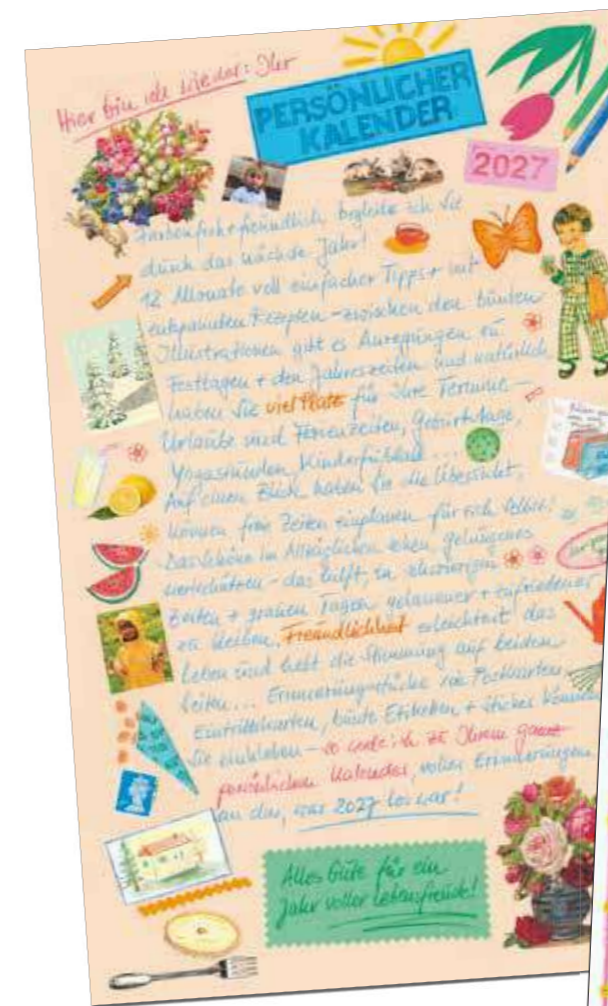 Hier bin ich wieder: Ihr
PERSÖNLICHER
KALENDER
2027
Farbenfroh + freundlich begleite ich Sie
durch das nächste Jahr!
12 Monate voll einfacher Tipps + mit
entspannten Rezepten – zwischen den bunten
Illustrationen gibt es Anregungen zu
Festtagen + den Jahreszeiten und natürlich
haben Sie viel Platz für Ihre Termine –
Urlaube und Ferienzeiten, Geburtstage,
Yogastunden, Kinderfrühling ...
Auf einen Blick haben Sie die Übersicht,
können freie Zeiten einplanen für sich selbst!
Das Schöne im Alltäglichen sehen, gelungenes
wertschätzen – das hilft, in
Zeiten + grauen Tagen gelassener + zufriedener
zu bleiben. Freundlichkeit erleichtert das
Leben und hebt die Stimmung auf beiden
Seiten ... Erinnerungsstücke wie Postkarten,
Eintrittskarten, bunte Etiketten + Sticker können
Sie einkleben – so werde ich zu Ihrem ganz
persönlichen Kalender, voller Erinnerungen
an das, was 2027 los war!
Alles Gute für ein
Jahr voller Lebensfreude!